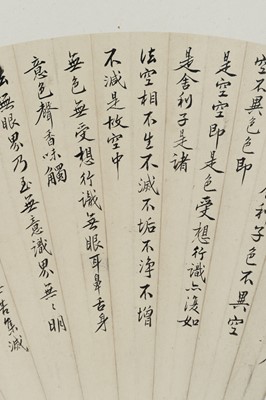 舍利子色不異空
空不異色色即
是空空即是色受想行識亦復如
是舍利子是諸
法空相不生不滅不垢不淨不增
不滅是故空中
無色無受想行識無眼耳鼻舌身
意色聲香味觸
法無眼界乃至無意識界無々明
苦集滅